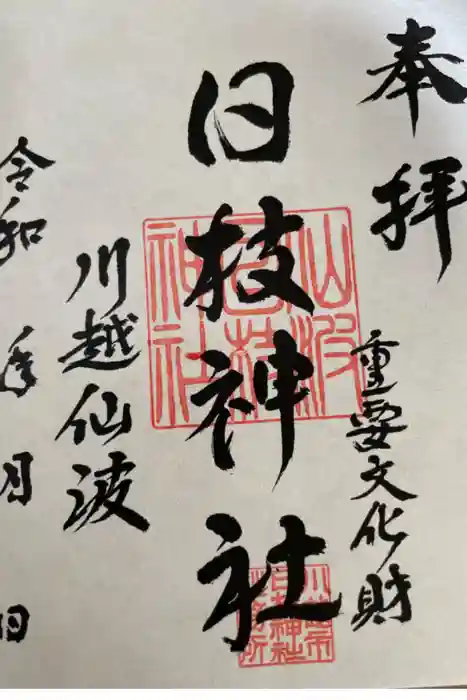 奉拝
重要文化財
日枝神社
仙波日枝神社
川越仙波
令和 年 月 日